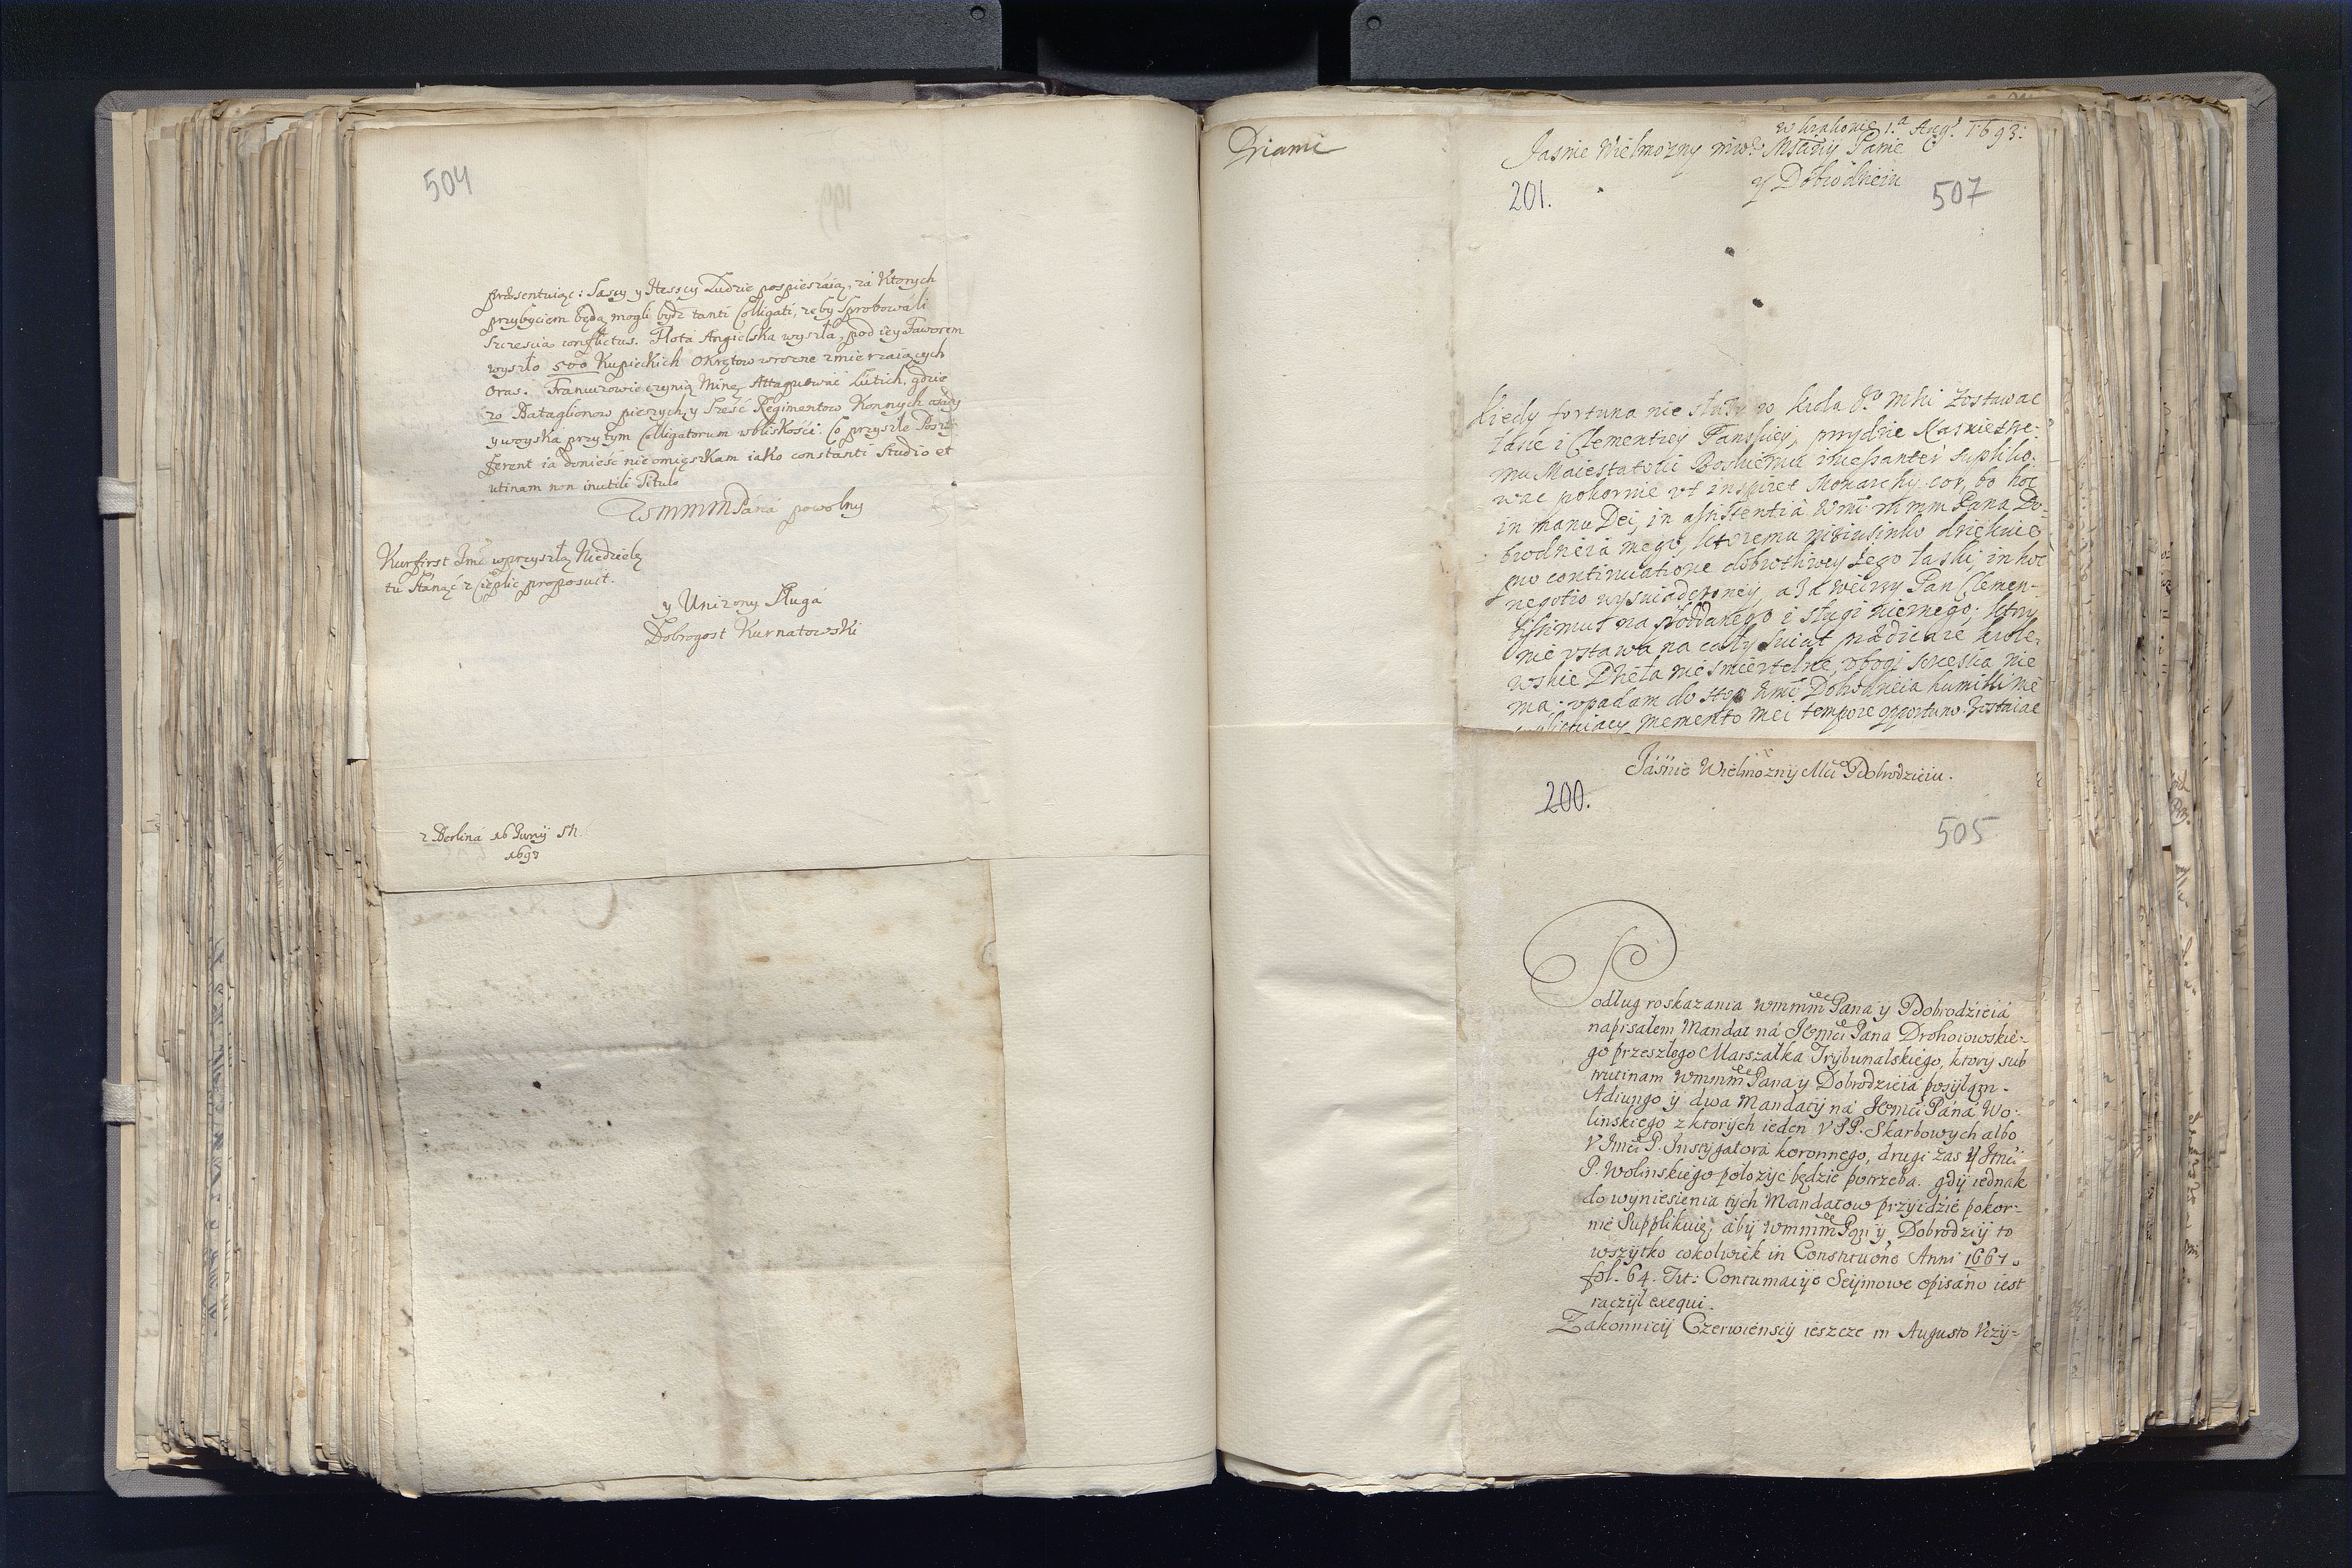 504
præsentuiąc: Sascy y Hesscy Ludzie pospieszaią, za Ktorych
przybyciem będą mogli bydz tanti Colligati, zeby sprobowali
szczescia conflictus. Flota Angielska wyszła, pod iey Faworem
wyszło 500 Kupieckich Okrętow wrozne zmierzaiących
Oras. Francuzowie czynią Minę Attaquować Lutich, gdzie
20 Bataglionow pieszych, y sześć Regimentow Konnych
y woyska przy tym Colligatorum wbliskości. Co przyszłe Poszt
ferent ia donieść nieomięszkam iako constanti studio et
utinam non inutili Titulo
WMMMPana powolny
Kurfirst Jmć wprzyszłą Niedzielę
tu stanąć z Cieplic proposuit.
y Unizony Sługa
Dobrogost Kurnatowski
z Berlina 16 Junij SN.
1693
Driami
w krakowie 1.a Aug. 1693.
Jasnie Wielmozny Panie
y Dobrodzieiu
201.
507
Kiedy fortuna nie słuzy w krola Mhi zostawac
łasce i Clementiey Panskiey, przydzie
mu Maiestatowi Boskiemu incessanter supliko-
wac pokornie vt inspiret Monarchy cor, bo hoc
in manu Dei, in assistentia Wmci mmm Pana Do-
brodzieia mego, ktoremu niziusinko dziekuie
pro continuatione dobrotliwey Jego łaski, in hoc
negotio wyswiadczoney, a Pan Clemen-
tissimus na poddanego i sługi wiernego; ktory
nie vstawa na cały swiat prædicare krole-
wskie Dzieła niesmiertelne, vbogi szczescia nie
ma. vpadam do stop Wmci Dobrodzieia humillime
memento mei tempore opportuno. Zostaiac
Jasnie Wielmoznij Mci Dobrodzieiu.
200.
505
Podług roskazania Wmmm Pana y Dobrodzieia
napisałem Mandat na Jemci Pana Drohoiowskie-
go przeszłego Marszałka Trybunalskiego, ktory sub
trutinam Wmmm Pana y Dobrodzieia posyłąm.
Adiungo ÿ dwa Mandaty na Jemci Pana Wo-
linskiego z ktorych ieden V PP. Skarbowych albo
V Jmci P. Instygatora koronnego, drugi zas V Jmci
P. Wolinskiego położyc będzie potrzeba. gdÿ iednak
do wyniesienia tych Mandatow przyidzie pokor-
nie Supplikuię; abÿ Wmmm Pan y Dobrodzij to
wszytko cokolwiek in Constitutione Anni 1667.
fol. 64. Tit: Contumacije Seijmowe opisano iest
raczył exequi.
Zakonnicij Czerwienscij ieszcze in Augusto Vczy-